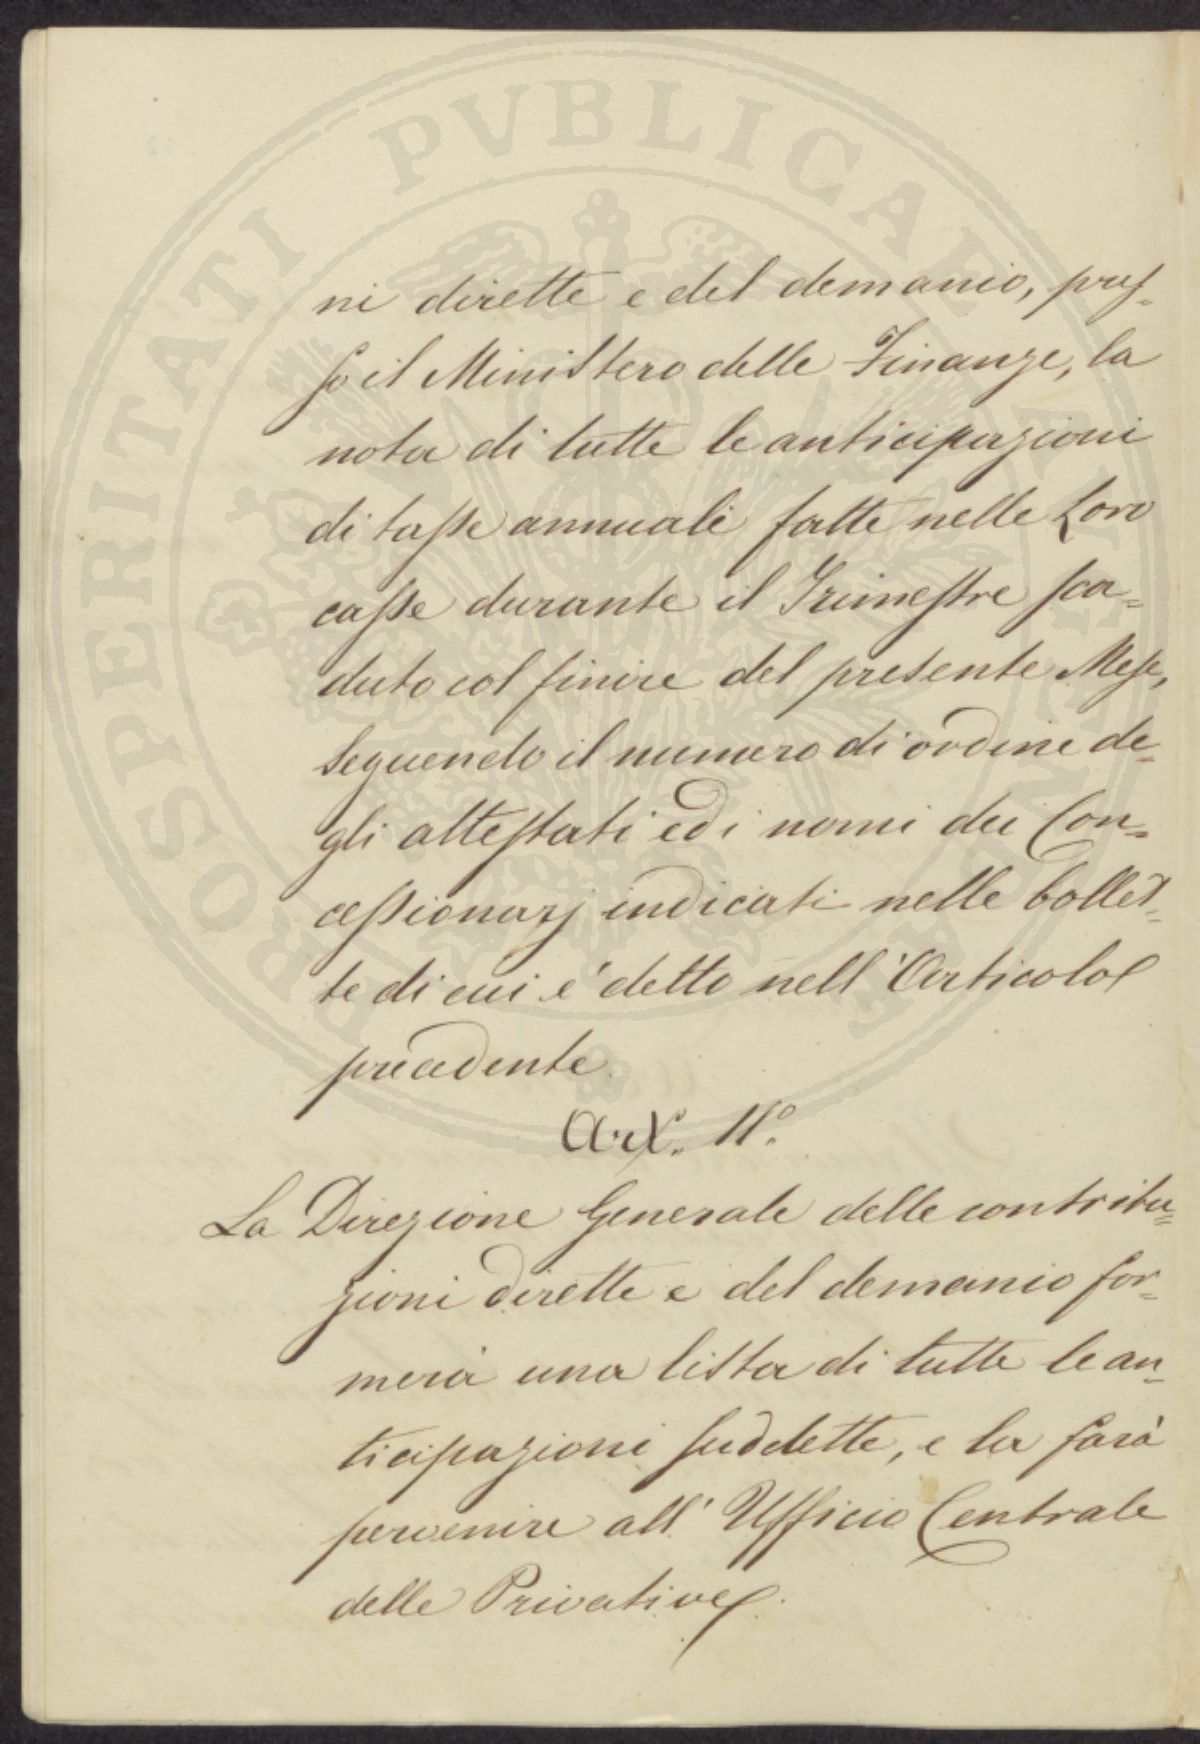 PROSPERITATI PVBLICAE AVGENDAE
ni dirette e del demanio, pres-
so il Ministero delle Finanze, la
nota di tutte le anticipazioni
di tasse annuali fatte nelle Loro
casse durante il Trimestre sca=
duto col finire del presente Mese,
seguendo il numero di ordine de=
gli attestati ed i nomi dei Con=
cessionarj indicati nelle bollet=
te di cui è detto nell'Articolo
precedente.
Art. 11.°
La Direzione Generale delle contribu=
zioni dirette e del demanio for=
merà una lista di tutte le an=
ticipazioni suddette, e la farà
pervenire all'Ufficio Centrale
delle Privative.